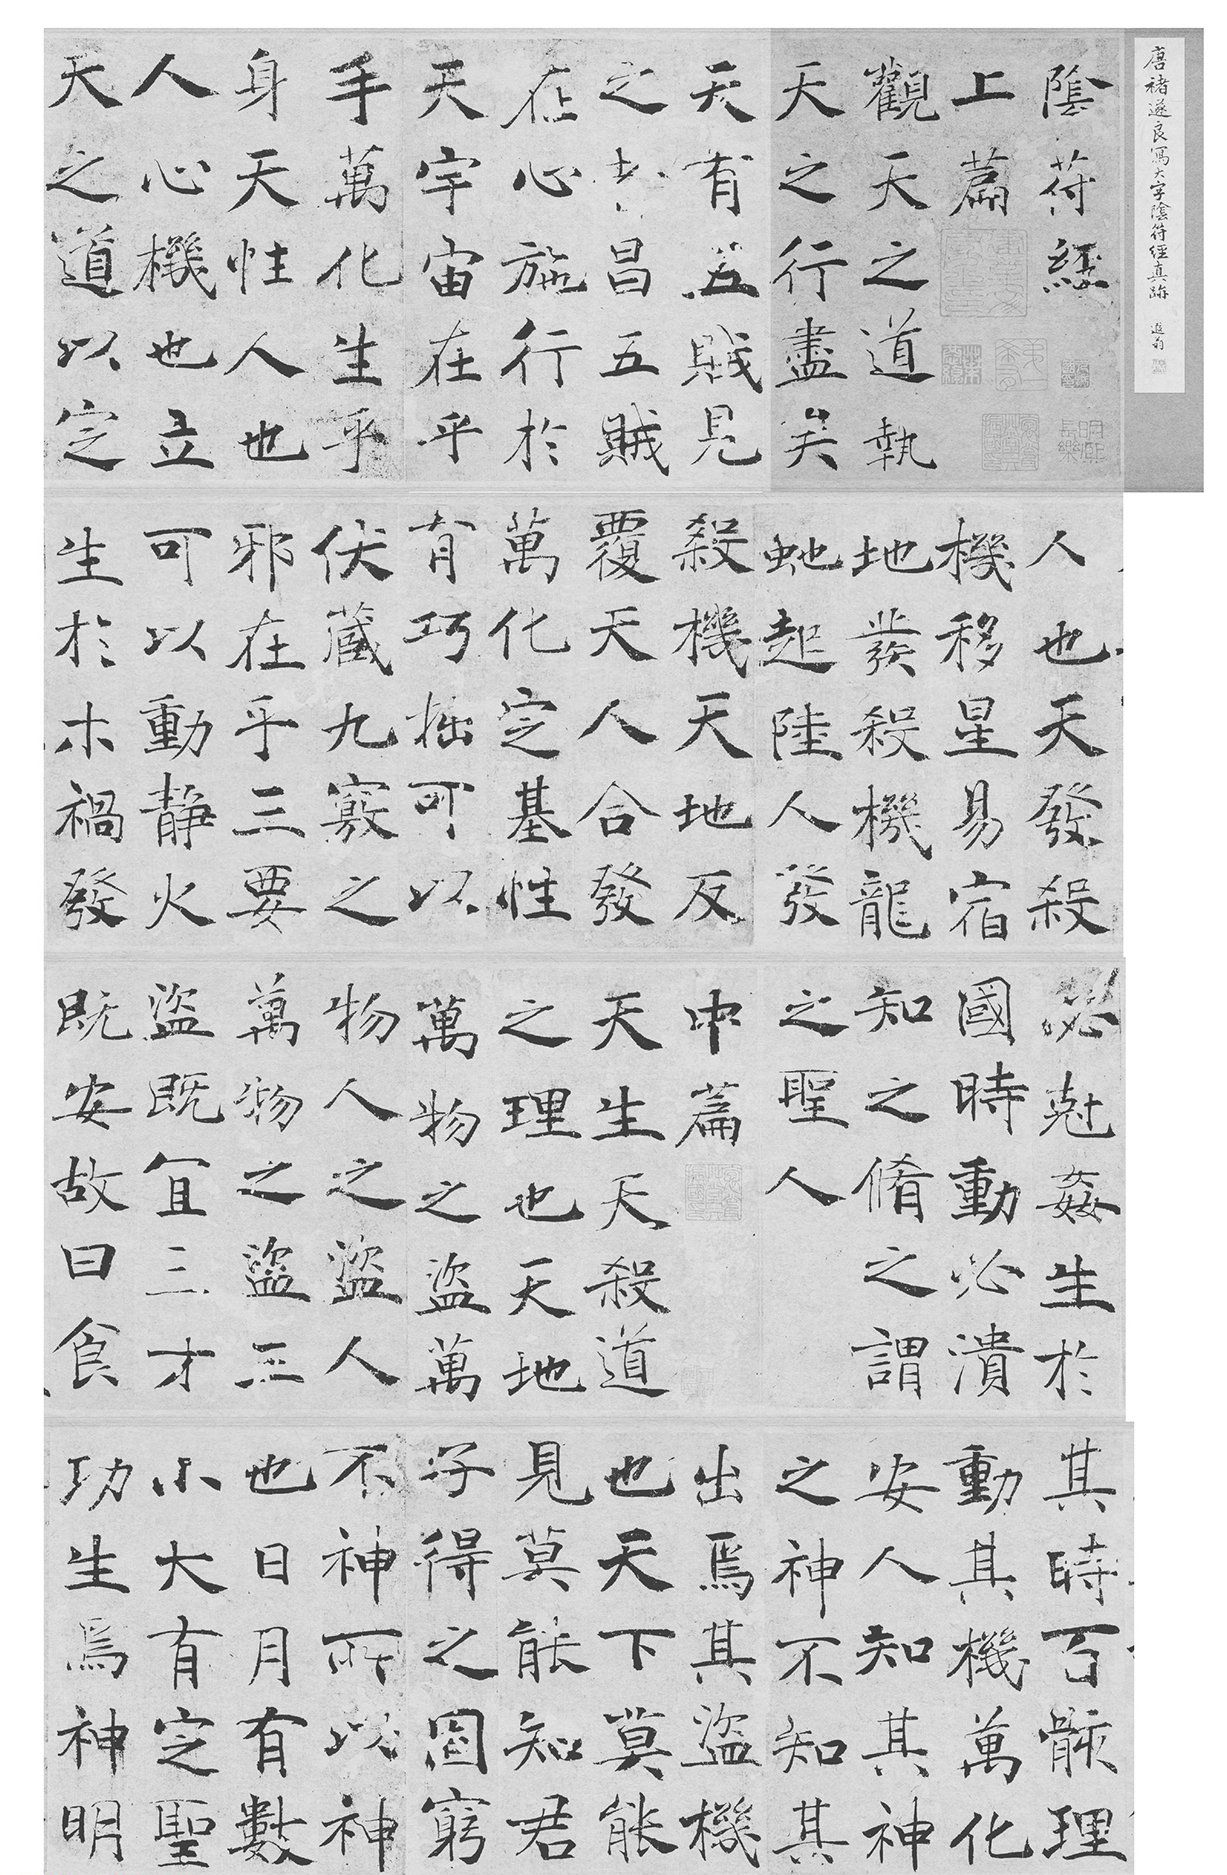 唐褚遂良寫大字陰符經真跡
陰符經
上篇
觀天之道執
天之行盡矣
天有五賊見
之者昌五賊
在心施行於
天宇宙在乎
手萬化生乎
身天性人也
人心機也立
天之道以定
人也天發殺
機移星易宿
地發殺機龍
虵起陸人發
殺機天地反
覆天人合發
萬化定基性
有巧拙可以
伏藏九竅之
邪在乎三要
可以動靜火
生於木禍發
必剋姦生於
國時動必潰
知之脩之謂
之聖人
中篇
天生天殺道
之理也天地
萬物之盜萬
物人之盜人
萬物之盜三
盜既宜三才
既安故曰食
其時百骸理
動其機萬化
安人知其神
之神不知其
不神所以神
也日月有數
小大有定聖
功生焉神明
出焉其盜機
也天下莫能
見莫能知君
子得之固窮